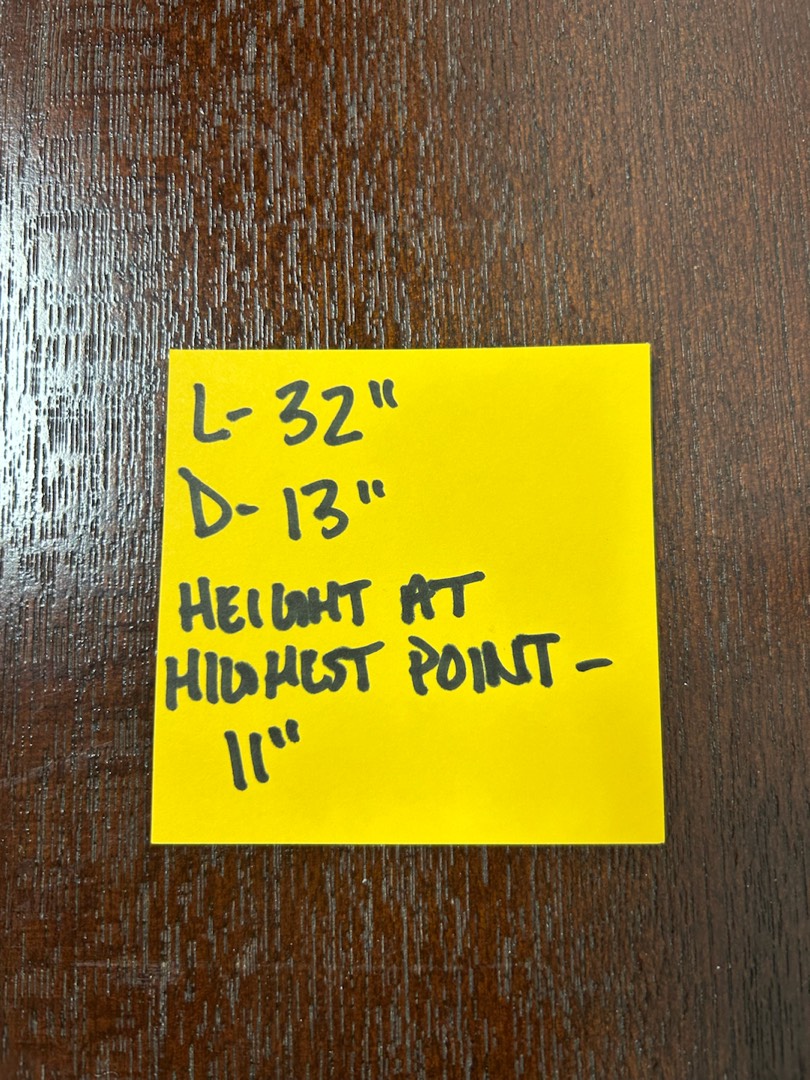 L- 32"
D- 13"
HEIGHT AT
HIGHEST POINT -
11"